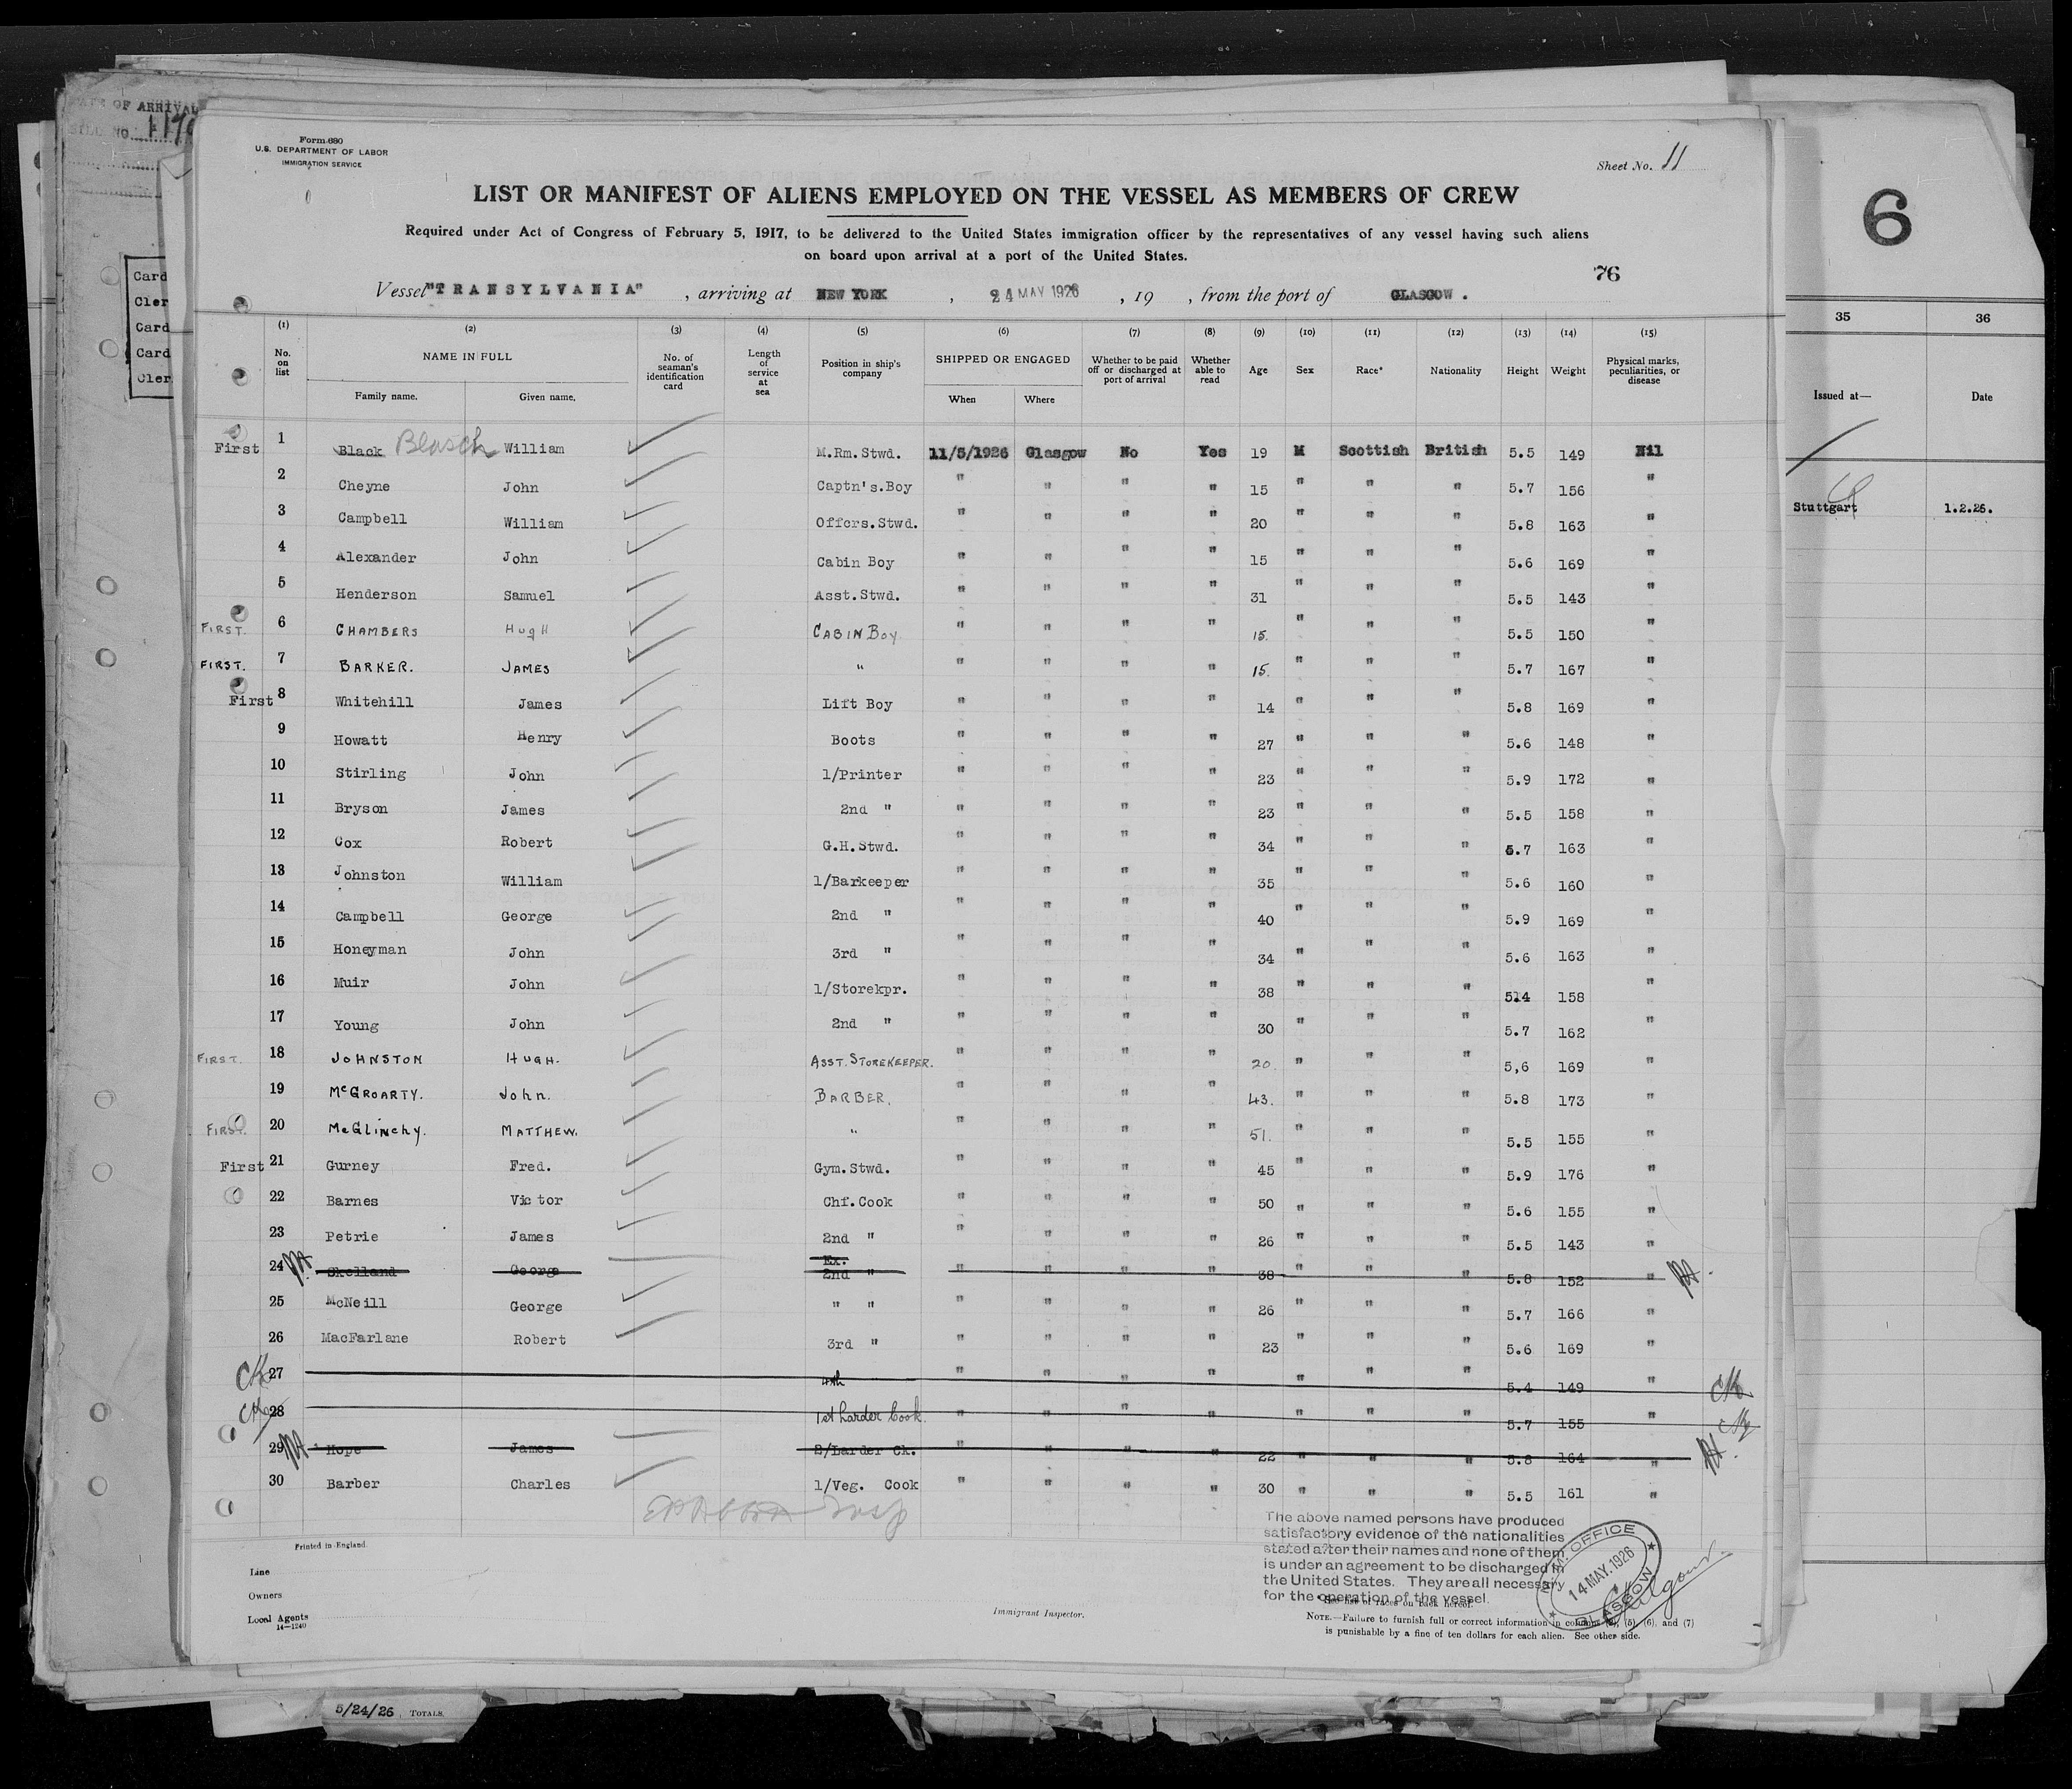 DATE OF ARRIVAL
Form 680
U.S. DEPARTMENT OF LABOR
IMMIGRATION SERVICE
Sheet No. 11
6
LIST OR MANIFEST OF ALIENS EMPLOYED ON THE VESSEL AS MEMBERS OF CREW
Required under Act of Congress of February 5, 1917, to be delivered to the United States immigration officer by the representatives of any vessel having such aliens
on board upon arrival at a port of the United States.
76
Vessel "TRANSYLVANIA" , arriving at NEW YORK , 24 MAY 1926 , 19 , from the port of GLASGOW .
Card
Cler
Card
Card
Cler
(1) (2) (3) (4) (5) (6) (7) (8) (9) (10) (11) (12) (13) (14) (15) 35 36
No. on list
NAME IN FULL
Family name. Given name.
No. of seaman's identification card
Length of service at sea
Position in ship's company
SHIPPED OR ENGAGED
When Where
Whether to be paid off or discharged at port of arrival
Whether able to read
Age Sex Race* Nationality Height Weight
Physical marks, peculiarities, or disease
Issued at— Date
Stuttgart 1.2.26.
First 1 Black Blasch William M.Rm.Stwd. 11/5/1926 Glasgow No Yes 19 M Scottish British 5.5 149 Nil
2 Cheyne John Captn's.Boy " " " " 15 " " " 5.7 156 "
3 Campbell William Offcrs.Stwd. " " " " 20 " " " 5.8 163 "
4 Alexander John Cabin Boy " " " " 15 " " " 5.6 169 "
5 Henderson Samuel Asst.Stwd. " " " " 31 " " " 5.5 143 "
FIRST. 6 CHAMBERS HugH CABIN Boy " " " " 15. " " " 5.5 150 "
FIRST. 7 BARKER. JAMES " " " " " 15. " " " 5.7 167 "
First 8 Whitehill James Lift Boy " " " " 14 " " " 5.8 169 "
9 Howatt Henry Boots " " " " 27 " " " 5.6 148 "
10 Stirling John 1/Printer " " " " 23 " " " 5.9 172 "
11 Bryson James 2nd " " " " " 23 " " " 5.5 158 "
12 Cox Robert G.H.Stwd. " " " " 34 " " " 5.7 163 "
13 Johnston William 1/Barkeeper " " " " 35 " " " 5.6 160 "
14 Campbell George 2nd " " " " " 40 " " " 5.9 169 "
15 Honeyman John 3rd " " " " " 34 " " " 5.6 163 "
16 Muir John 1/Storekpr. " " " " 38 " " " 5.4 158 "
17 Young John 2nd " " " " " 30 " " " 5.7 162 "
FIRST. 18 JOHNSTON HUGH. ASST. STOREKEEPER. " " " " 20. " " " 5,6 169 "
19 McGROARTY. John. BARBER. " " " " 43. " " " 5.8 173 "
FIRST. 20 McGlinchy. MATTHEW. " " " " " 51. " " " 5.5 155 "
First 21 Gurney Fred. Gym.Stwd. " " " " 45 " " " 5.9 176 "
22 Barnes Victor Chf.Cook " " " " 50 " " " 5.6 155 "
23 Petrie James 2nd " " " " " 26 " " " 5.5 143 "
24 Skelland George Ex. 2nd " " " " " 38 " " " 5.8 152 "
25 McNeill George " " " " " " 26 " " " 5.7 166 "
26 MacFarlane Robert 3rd " " " " " 23 " " " 5.6 169 "
CK 27 4th " " " " " " " 5.4 149 " CK
CK 28 1st Larder Cook. " " " " " " " 5.7 155 " CK
29 Hope James 2/Larder Ck. " " " " 22 " " " 5.8 164 "
30 Barber Charles 1/Veg. Cook " " " " 30 " " " 5.5 161 "
The above named persons have produced
satisfactory evidence of the nationalities
stated after their names and none of them
is under an agreement to be discharged in
the United States. They are all necessary
for the operation of the vessel.
M.M. OFFICE
14 MAY. 1926
GLASGOW
Printed in England.
Line
Owners
Local Agents
14—1240
Immigrant Inspector.
*See list of races on back hereof.
NOTE.—Failure to furnish full or correct information in columns (2), (5), (6), and (7)
is punishable by a fine of ten dollars for each alien. See other side.
5/24/26 TOTALS.